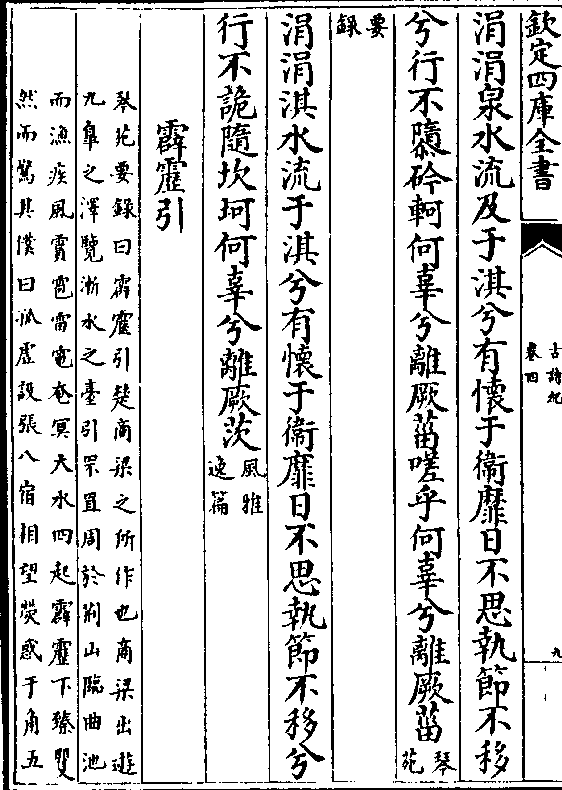 欽定四庫全書
古詩紀
卷四
九
涓涓泉水流及于淇兮有懷于衞靡日不思執節不移
兮行不隨砛軻何辜兮離厥菑嗟乎何辜兮離厥菑琴苑
要錄
涓涓淇水流于淇兮有懷于衞靡日不思執節不移兮
行不詭隨坎坷何辜兮離厥茨風雅逸篇
霹靂引
琴苑要錄曰霹靂引楚商梁之所作也商梁出遊
九臯之澤覽漸水之臺引罘罝周於荆山臨曲池
而漁疾風霣雹雷電奄冥大水四起霹靂下臻㸕
然而驚其僕曰孤虚設張八宿相望熒惑于角五